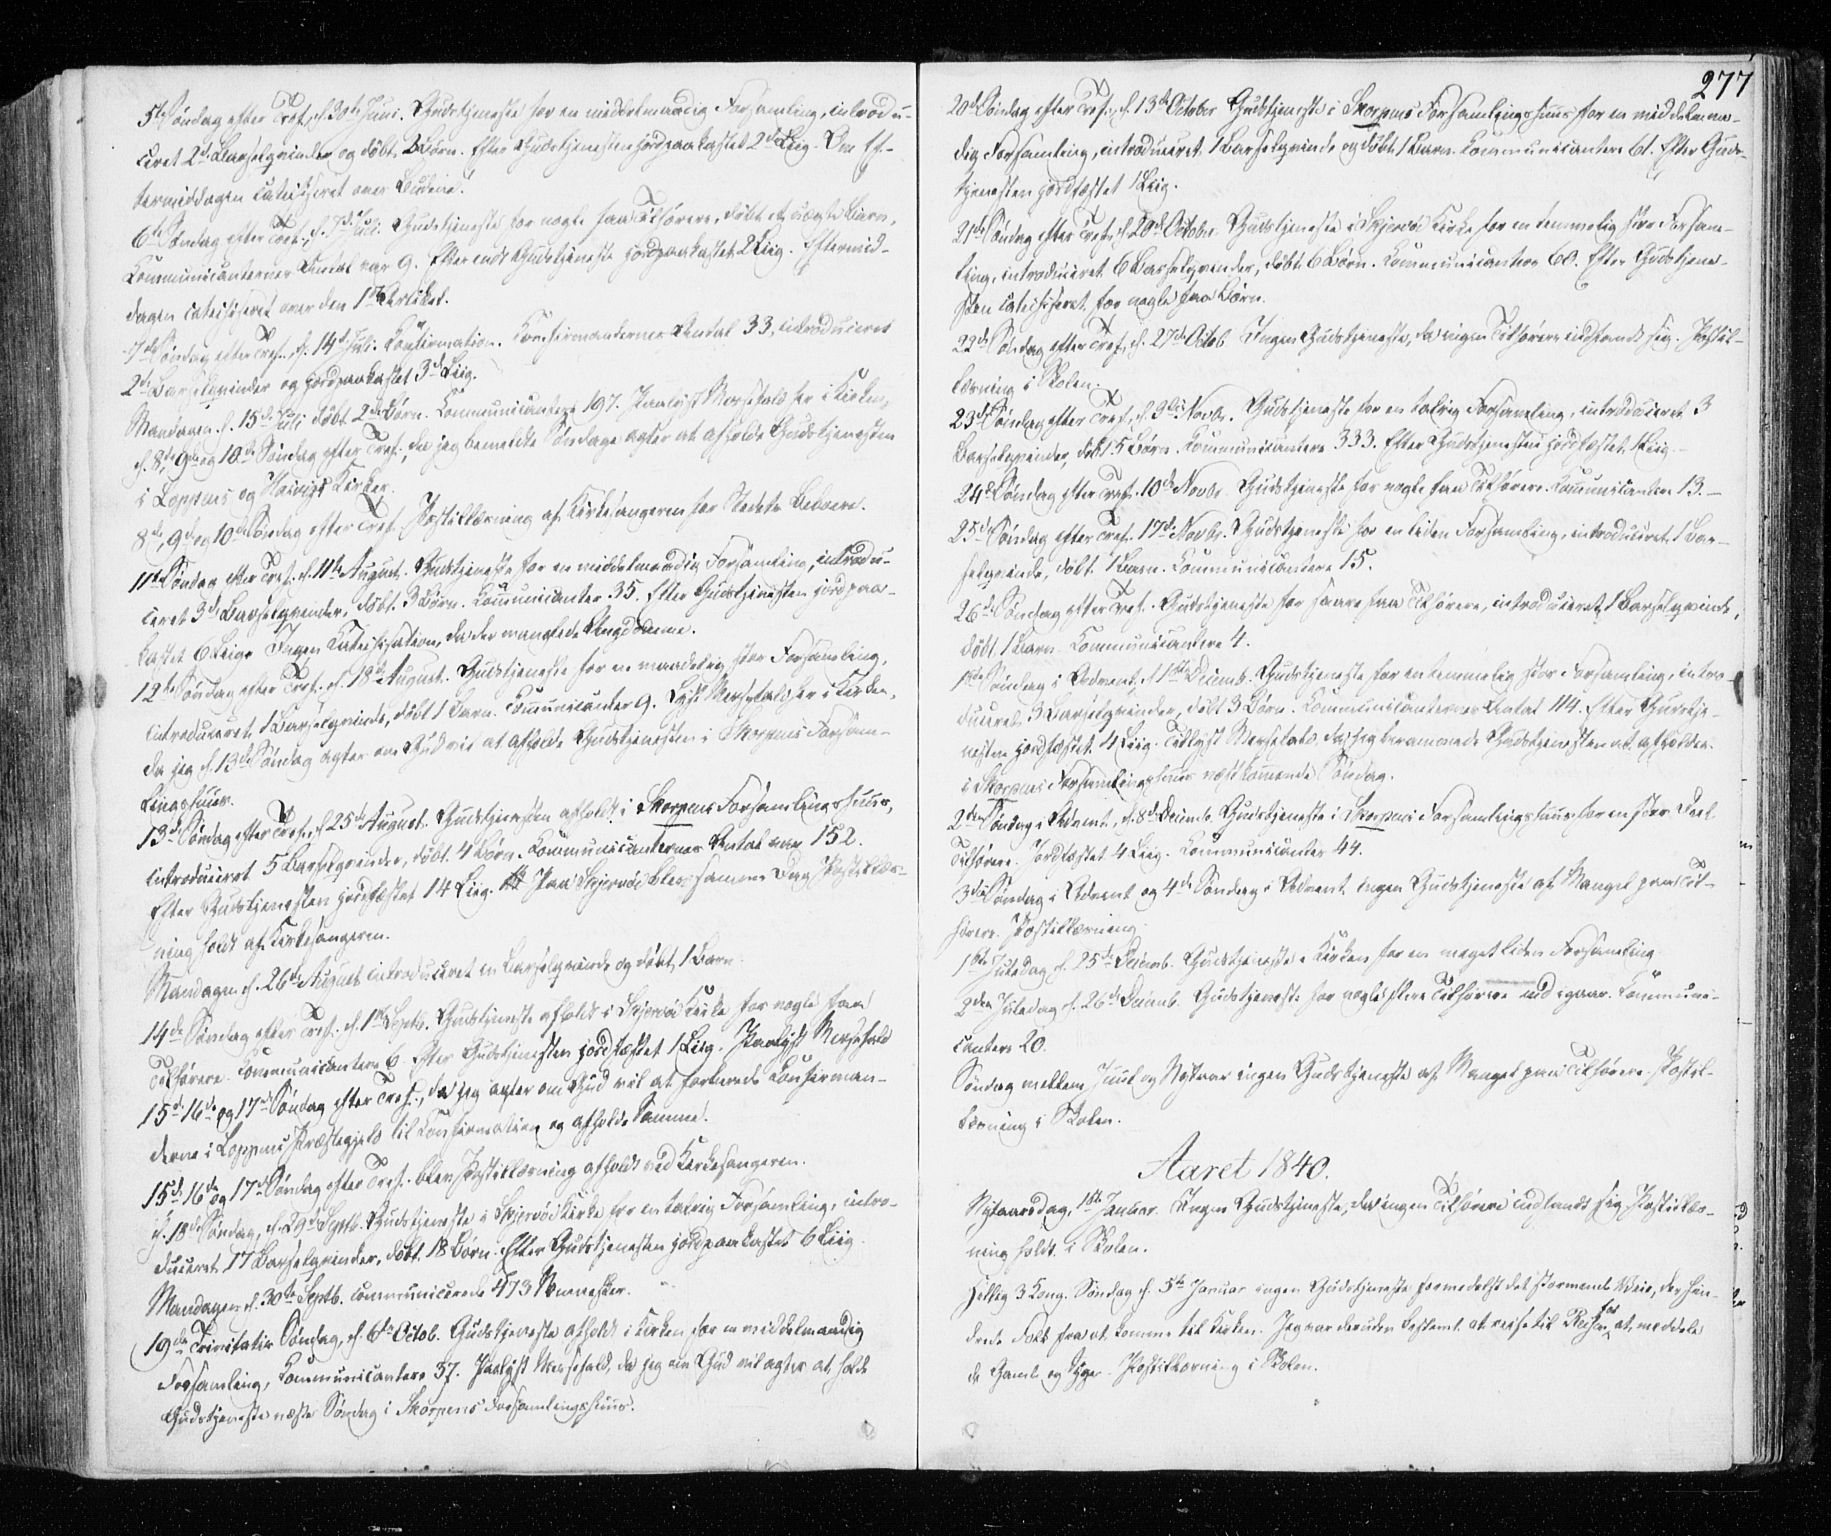 5te Søndag efter Tref., d. 30te Juni. Gudstjeneste for en middelmaadig Forsamling, introdu-
ceret 2de Barselqvinder og døbt 2 Børn. Efter Gudstjenesten jordpaakastet 2de Liig. Om Ef-
termiddagen catechiseret over Budene.
6te Søndag efter Tref., d. 7de Juli. Gudstjeneste for nogle faa Tilhørere, døbt et uægte Barn.
Communicanternes Antal var 9. Efter endt Gudstjeneste jordpaakastet 2 Liig. Eftermid-
dagen catechiseret over den 1ste Artikel.
7de Søndag efter Tref., d. 14de Juli. Confirmation. Confirmandernes Antal 33, introduceret
2de Barselqvinder og jordpaakastet 3de Liig.
Mandagen d. 15de Juli døbt 2de Børn. Communicantere 197. Paalyst Messefald her i Kirken,
d. 8de, 9de og 10de Søndag efter Tref., da jeg bemeldte Søndage agter at afholde Gudstjenesten
i Loppens og Hasvigs Kirker.
8de, 9de og 10de Søndag efter Tref. Postillæsning af Kirkesangeren for Stedets Beboere.
11te Søndag efter Tref. d. 11te August. Gudstjeneste for en middelmaadig Forsamling, introdu-
ceret 3de Barselqvinder, døbt 3 Børn. Communicanter 35. Efter Gudstjenesten jordpaa-
kastet 6 Liig. Ingen Katechisation, da der manglede Ungdomme.
12te Søndag efter Tref. d. 18de August. Gudstjeneste for en maadelig stor Forsamling,
introduceret 1 Barselqvinde, døbt 1 Barn. Communicanter 9. Lyst Messefald her i Kirken,
da jeg d. 13de Søndag agter om Gud vil at afholde Gudstjenesten i Skorpens Forsam-
lingshuus.
13de Søndag efter Tref., d. 25de August. Gudstjenesten afholdt i Skorpens Forsamlingshuus,
introduceret 5 Barselqvinder, døbt 4 Børn. Communicanternes Antal var 152.
Efter Gudstjenesten jordfæstet 14 Liig. Paa Skjervøe blev samme Dag Postillæs-
ning holdt af Kirkesangeren.
Mandagen d. 26de August introduceret en Barselqvinde og døbt 1 Barn.
14de Søndag efter Tref. d. 1ste Septb. Gudstjeneste afholdt i Skjervøe Kirke for nogle faa
Tilhørere. Communicantere 6. Efter Gudstjenesten jordfæstet 1 Liig. Paalyst Messefald
15de 16de og 17de Søndag efter Tref., da jeg agter om Gud vil at forberede Confirman-
derne i Loppens Præstegjeld til Confirmation og afholde Samme.
15de 16de og 17de Søndag efter Tref. blev Postillæsning afholdt ved Kirkesangeren.
d. 18de Søndag, d. 29de Septb. Gudstjeneste i Skjervøe Kirke for en talrig Forsamling, intro-
duceret 17 Barselqvinder, døbt 18 Børn. Efter Gudstjenesten jordpaakastet 6 Liig.
Mandagen d. 30te Septb. communicerede 473 Mennesker.
19de Trinitatis Søndag, d. 6te Octob. Gudstjeneste afholdt i Kirken for en middelmaadig
Forsamling, Communicantere 37. Paalyst Messefald, da jeg om Gud vil agter at holde
Gudstjeneste næste Søndag i Skorpens Forsamlingshuus.
277
20de Søndag efter Tref., d. 13de October Gudstjeneste i Skorpens Forsamlingshuus for en middelmaa-
dig Forsamling, introduceret 1 Barselqvinde og døbt 1 Barn. Communicantere 61. Efter Guds-
tjenesten jordfæstet 1 Liig.
21de Søndag efter Tref., d. 20de October. Gudstjeneste i Skjervøe Kirke for en temmelig stor Forsam-
ling, introduceret 6 Barselqvinder, døbt 6 Børn. Communicantere 60. Efter Gudstjene-
sten catechiseret for nogle faa Børn.
22de Søndag efter Tref. d. 27de Octob. Ingen Gudstjeneste, da ingen Tilhørere indfandt sig. Postil-
læsning i Skolen.
23de Søndag efter Tref., d. 3die Novbr. Gudstjeneste for en talrig Forsamling, introduceret 3
Barselqvinder, døbt 5 Børn. Communicantere 333. Efter Gudstjenesten jordfæstet 1 Liig.
24de Søndag efter Tref. 10de Novbr. Gudstjeneste for nogle faa Tilhørere. Communicantere 13.
25de Søndag efter Tref. 17de Novbr. Gudstjeneste for en liden Forsamling, introduceret 1 Bar-
selqvinde, døbt 1 Barn. Communicantere 15.
26de Søndag efter Tref. Gudstjeneste for saare faa Tilhørere, introduceret 1 Barselqvinde,
døbt 1 Barn. Communicantere 4.
1ste Søndag i Advent d. 1ste Decemb. Gudstjeneste for en temmelig stor Forsamling, intro-
duceret 3 Barselqvinder, døbt 3 Børn. Communicanternes Antal 114. Efter Gudstje-
nesten jordfæstet 4 Liig. Tillyst Messefald, da jeg berammede Gudstjenesten at afholdes
i Skorpens Forsamlingshuus næstkommende Søndag.
2den Søndag i Advent, d. 8de Decemb. Gudstjeneste i Skorpens Forsamlingshuus for en stor Deel
Tilhørere. Jordfæstet 4 Liig. Communicanter 44.
3die Søndag i Advent og 4de Søndag i Advent ingen Gudstjeneste af Mangel paa Til-
hørere. Postillæsning.
1ste Juledag d. 25de Decemb. Gudstjeneste i Kirken for en meget liden Forsamling.
2den Juledag d. 26de Decemb. Gudstjeneste for nogle flere Tilhørere end igaar. Communi-
cantere 20.
Søndag mellem Juul og Nytaar ingen Gudstjeneste af Mangel paa Tilhørere. Postil-
læsning i Skolen.
Aaret 1840.
Nytaarsdag, 1ste Januar. Ingen Gudstjeneste, da ingen Tilhørere indfandt sig. Postillæs-
ning holdt i Skolen.
Hellig 3 Kong. Søndag d. 5te Januar ingen Gudstjeneste formedelst det stormende Veir, der hin-
drede Folk fra at komme til Kirken. Jeg var desuden bestemt at reise til Reisen for at meddele
de Gamle og Syge. Postillæsning i Skolen.